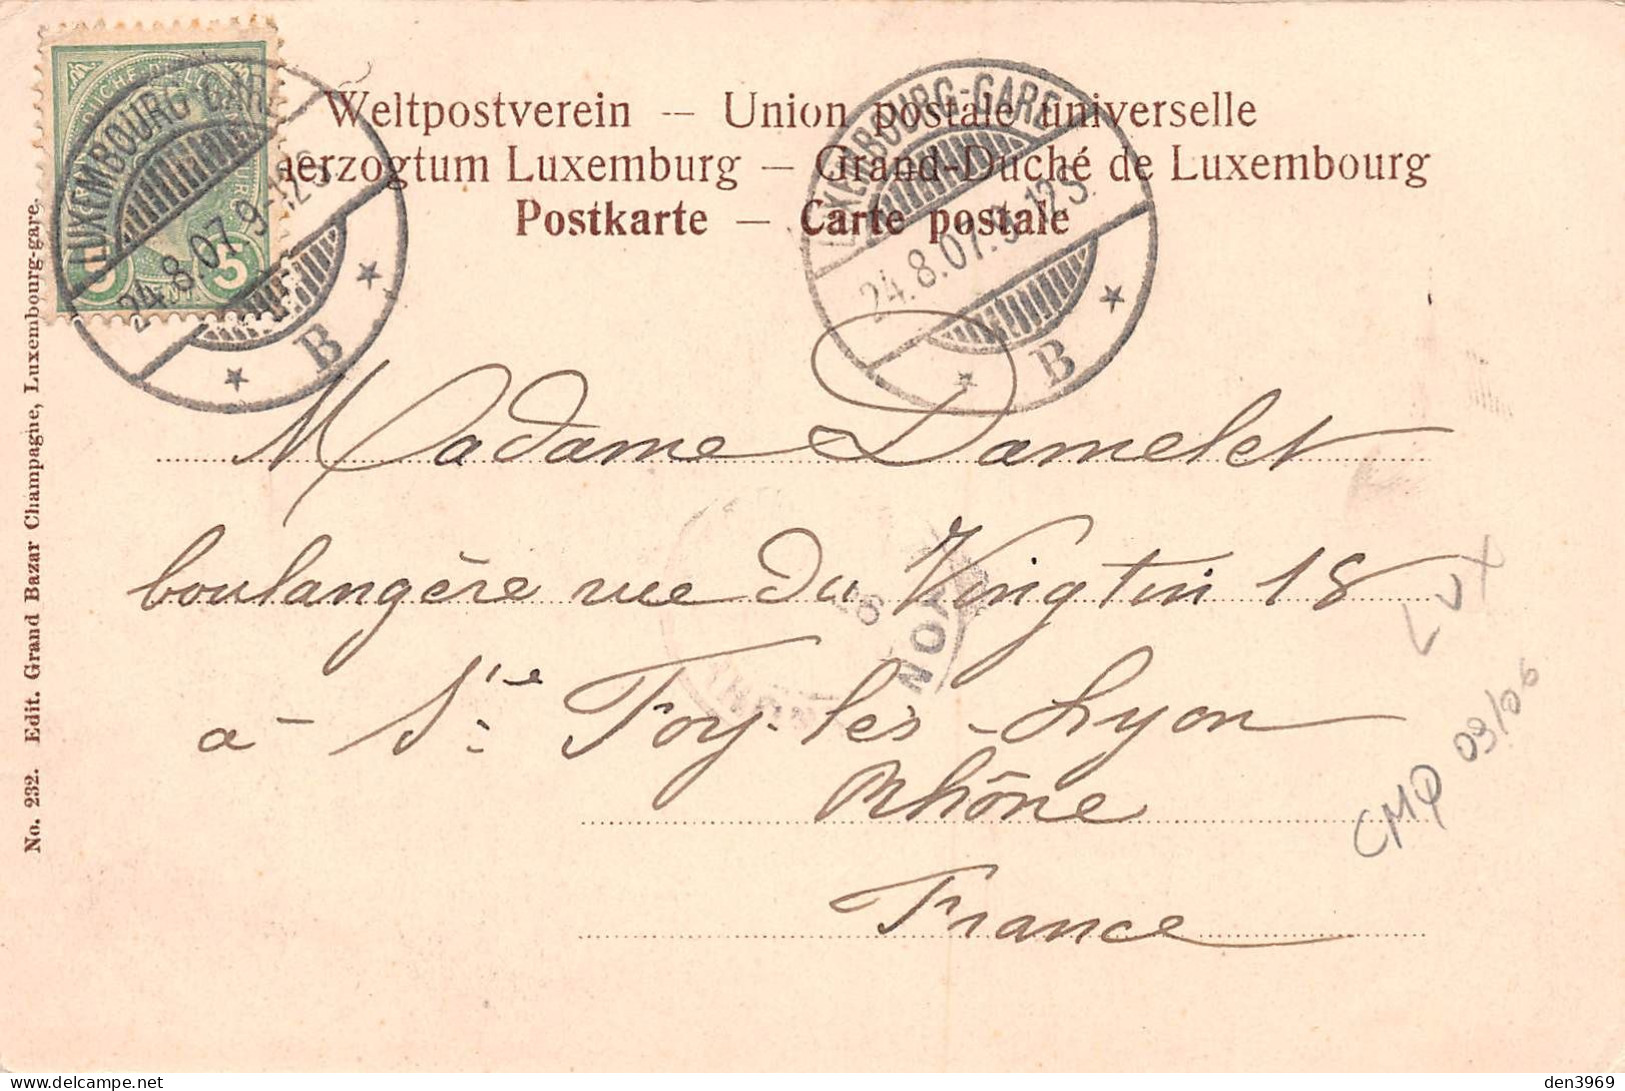 Weltpostverein — Union postale universelle
herzogtum Luxemburg — Grand-Duché de Luxembourg
Postkarte — Carte postale
LUXEMBOURG-GARE
24.8.07.9-12S
B
5
LUXEMBOURG-GARE
24.8.07.9-12S.
B
Madame Damelet
boulangère rue du Vingtin 18
à Ste Foy-les-Lyon
Rhône
France
LUX
CMP 09/06
No. 232. Edit. Grand Bazar Champagne, Luxembourg-gare.
delcampe.net
den3969